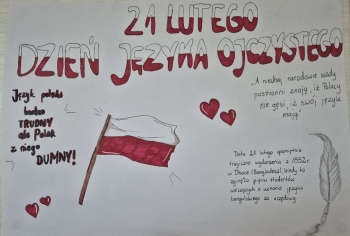 21 LUTEGO
DZIEŃ JĘZYKA OJCZYSTEGO
Język polski
bardzo
TRUDNY
ale Polak
z niego
DUMNY!
"A niechaj narodowie wżdy
postronni znają, iż Polacy
nie gęsi, iż swój język
mają"
Data 21 lutego upamiętnia
tragiczne wydarzenia z 1952r.
w Dhace (Bangladesz), kiedy to
zginęło pięciu studentów
walczących o uznanie języka
bengalskiego za urzędowy.